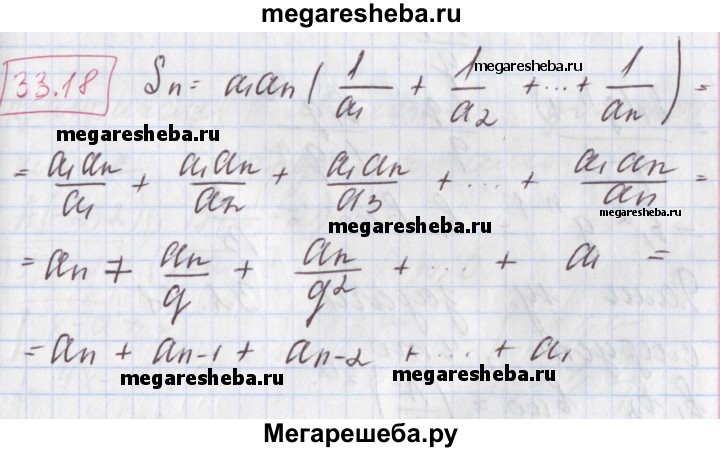 megaresheba.ru
33.18 Sn = a₁an ( 1/a₁ + 1/a₂ + ... + 1/an ) =
megaresheba.ru
megaresheba.ru
= a₁an/a₁ + a₁an/a₂ + a₁an/a₃ + ... + a₁an/an =
megaresheba.ru
megaresheba.ru
= an + an/q + an/q² + ... + a₁ =
= an + an-1 + an-2 + ... + a₁
megaresheba.ru
megaresheba.ru
Мегарешеба.ру